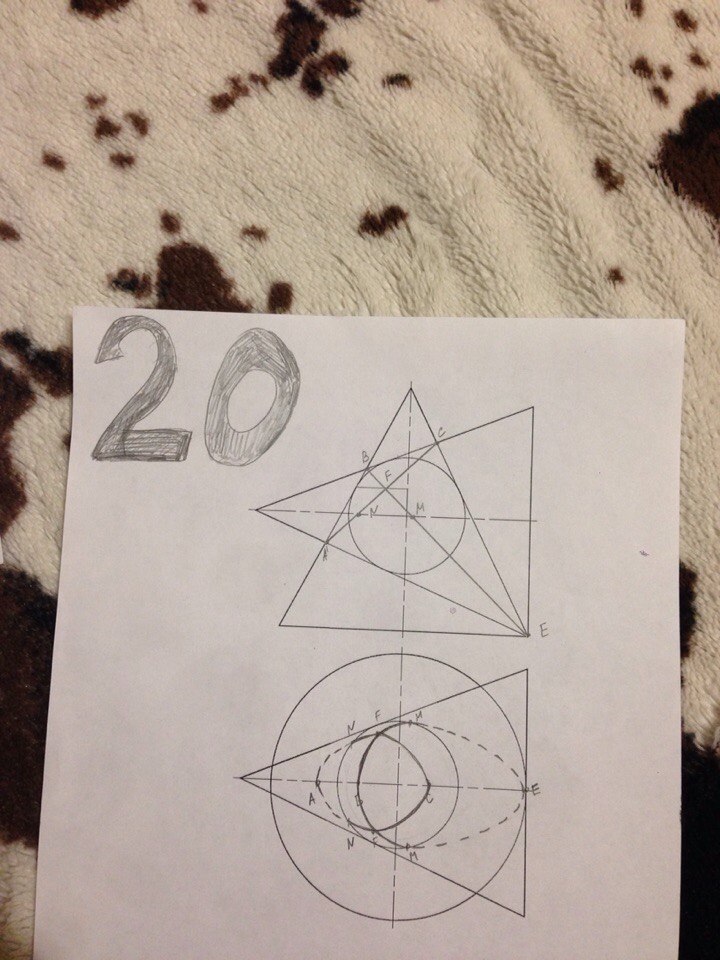 20
C
B
F
N M
A
E
N F M
A B C E
N F M